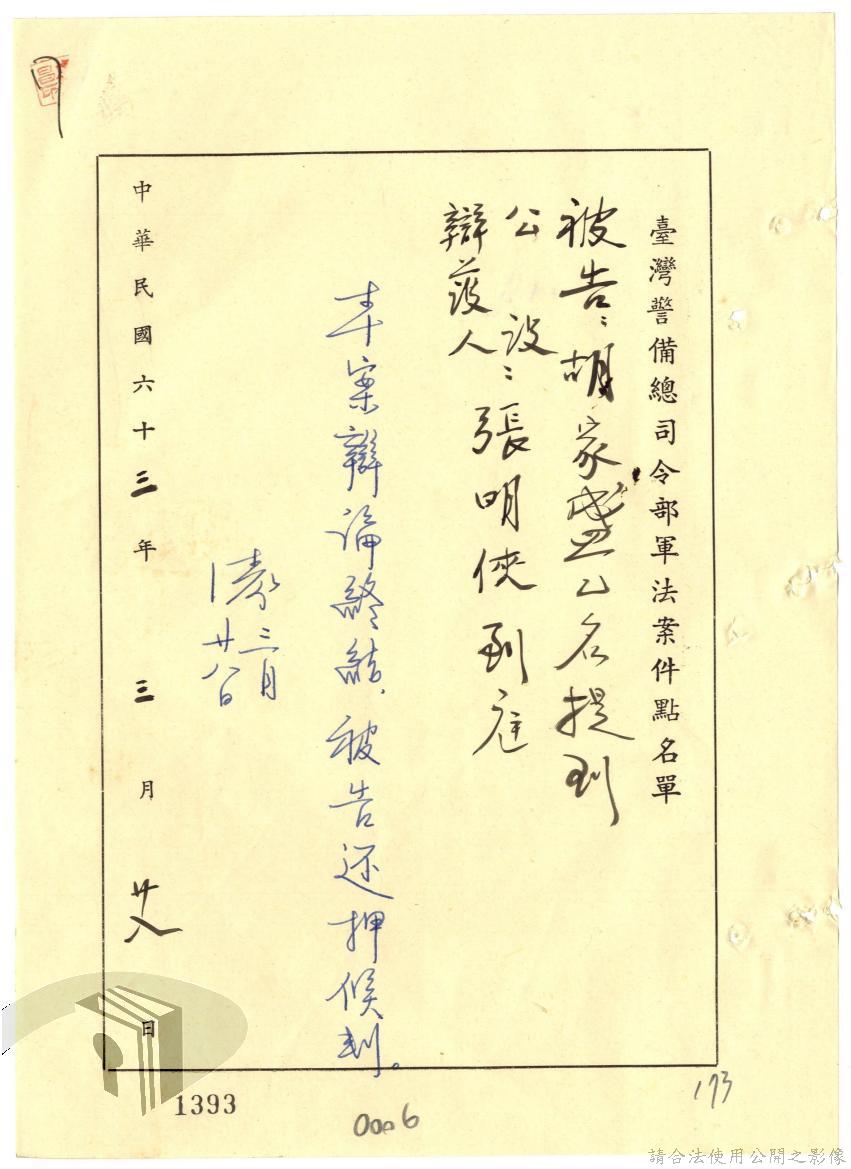 臺灣警備總司令部軍法案件點名單
被告:胡家盛乙名提到
公設
辯護人:張明俠到庭
本案辯論終結,被告还押候判。
三月
廿八日
中華民國六十三年三月廿八日
1393
0006
173
請合法使用公開之影像